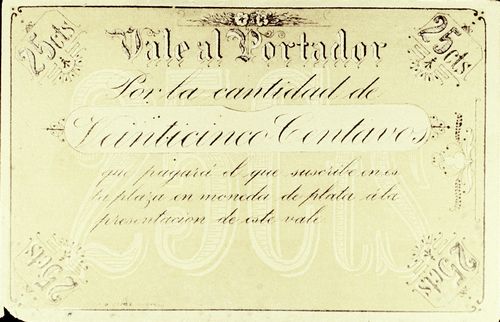 25cts 25cts
Vale al Portador
Por la cantidad de
Veinticinco Centavos
que pagará el que suscribe en es
ta plaza en moneda de plata á la
presentacion de este vale
25cts
25cts 25cts